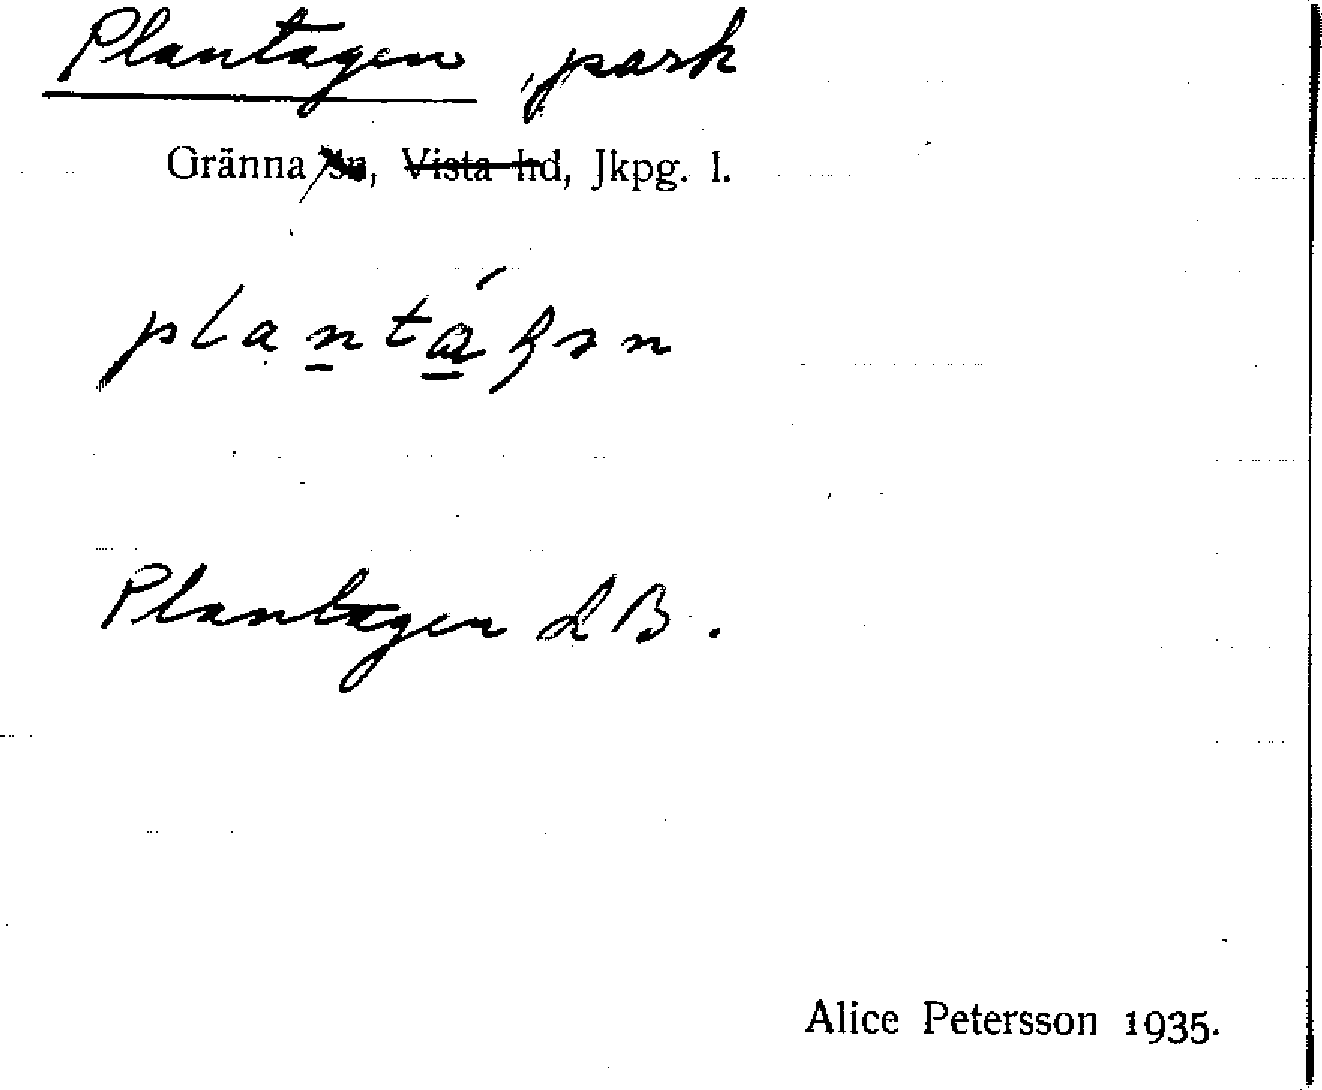 Plantagen, park
Gränna sn, Vista hd, Jkpg. l.
Plantagen LB.
Alice Petersson 1935.